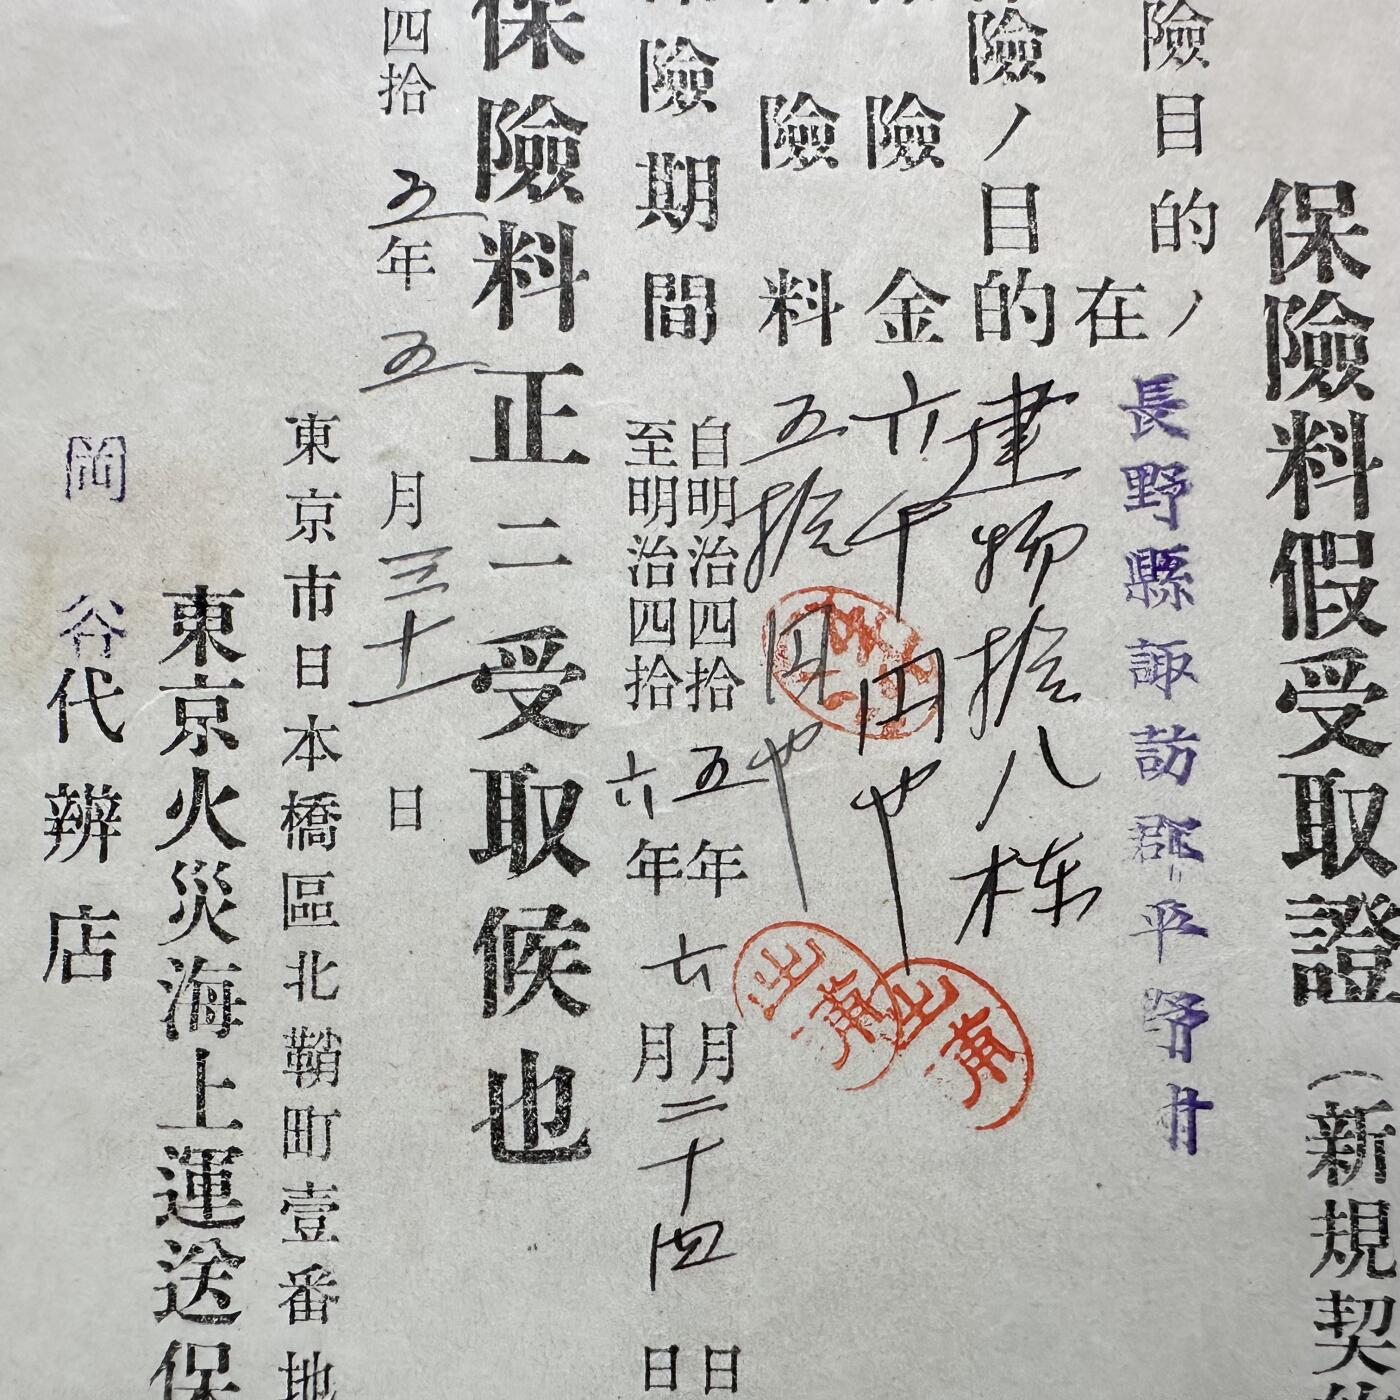 保險料假受取證（新規契
險目的ノ
在
長野縣諏訪郡平野村
險ノ目的 建物拾八棟
險金 六千円也
險料 五拾円也
險期間
自明治四拾五年七月二十四日
至明治四拾六年七月二十四日
保險料正ニ受取候也
四拾五年五月三十一日
東京市日本橋區北鞘町壹番地
東京火災海上運送保
岡谷代辨店